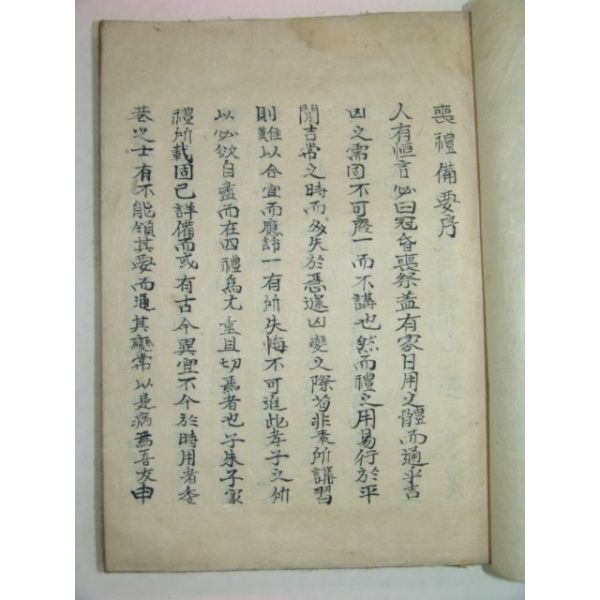 喪禮備要序
人有恒言必曰冠昏喪祭盖有家日用之體而通乎吉
凶之需固不可廢一而不講也然而禮之用易行於平
閒吉常之時而多失於急遽凶變之際苟非素所講習
則難以合宜而應節一有所失悔不可追此孝子之所
以必欲自盡而在四禮爲尤重且切焉者也子朱子家
禮所載固已詳備而或有古今異宜不合於時用者委
巷之士有不能領其要而通其變常以是病焉吾友申